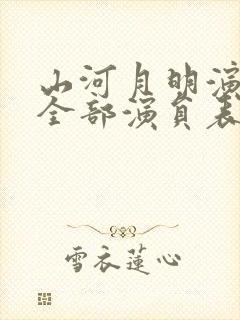 山河月明演
全部演員表
雪衣蓮心